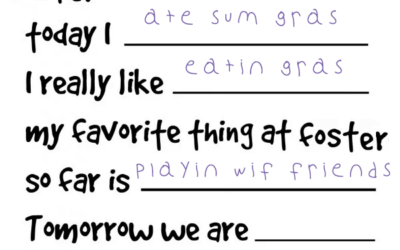 today I ate sum gras
I really like eatin gras
my favorite thing at foster
so far is playin wif friends
Tomorrow we are